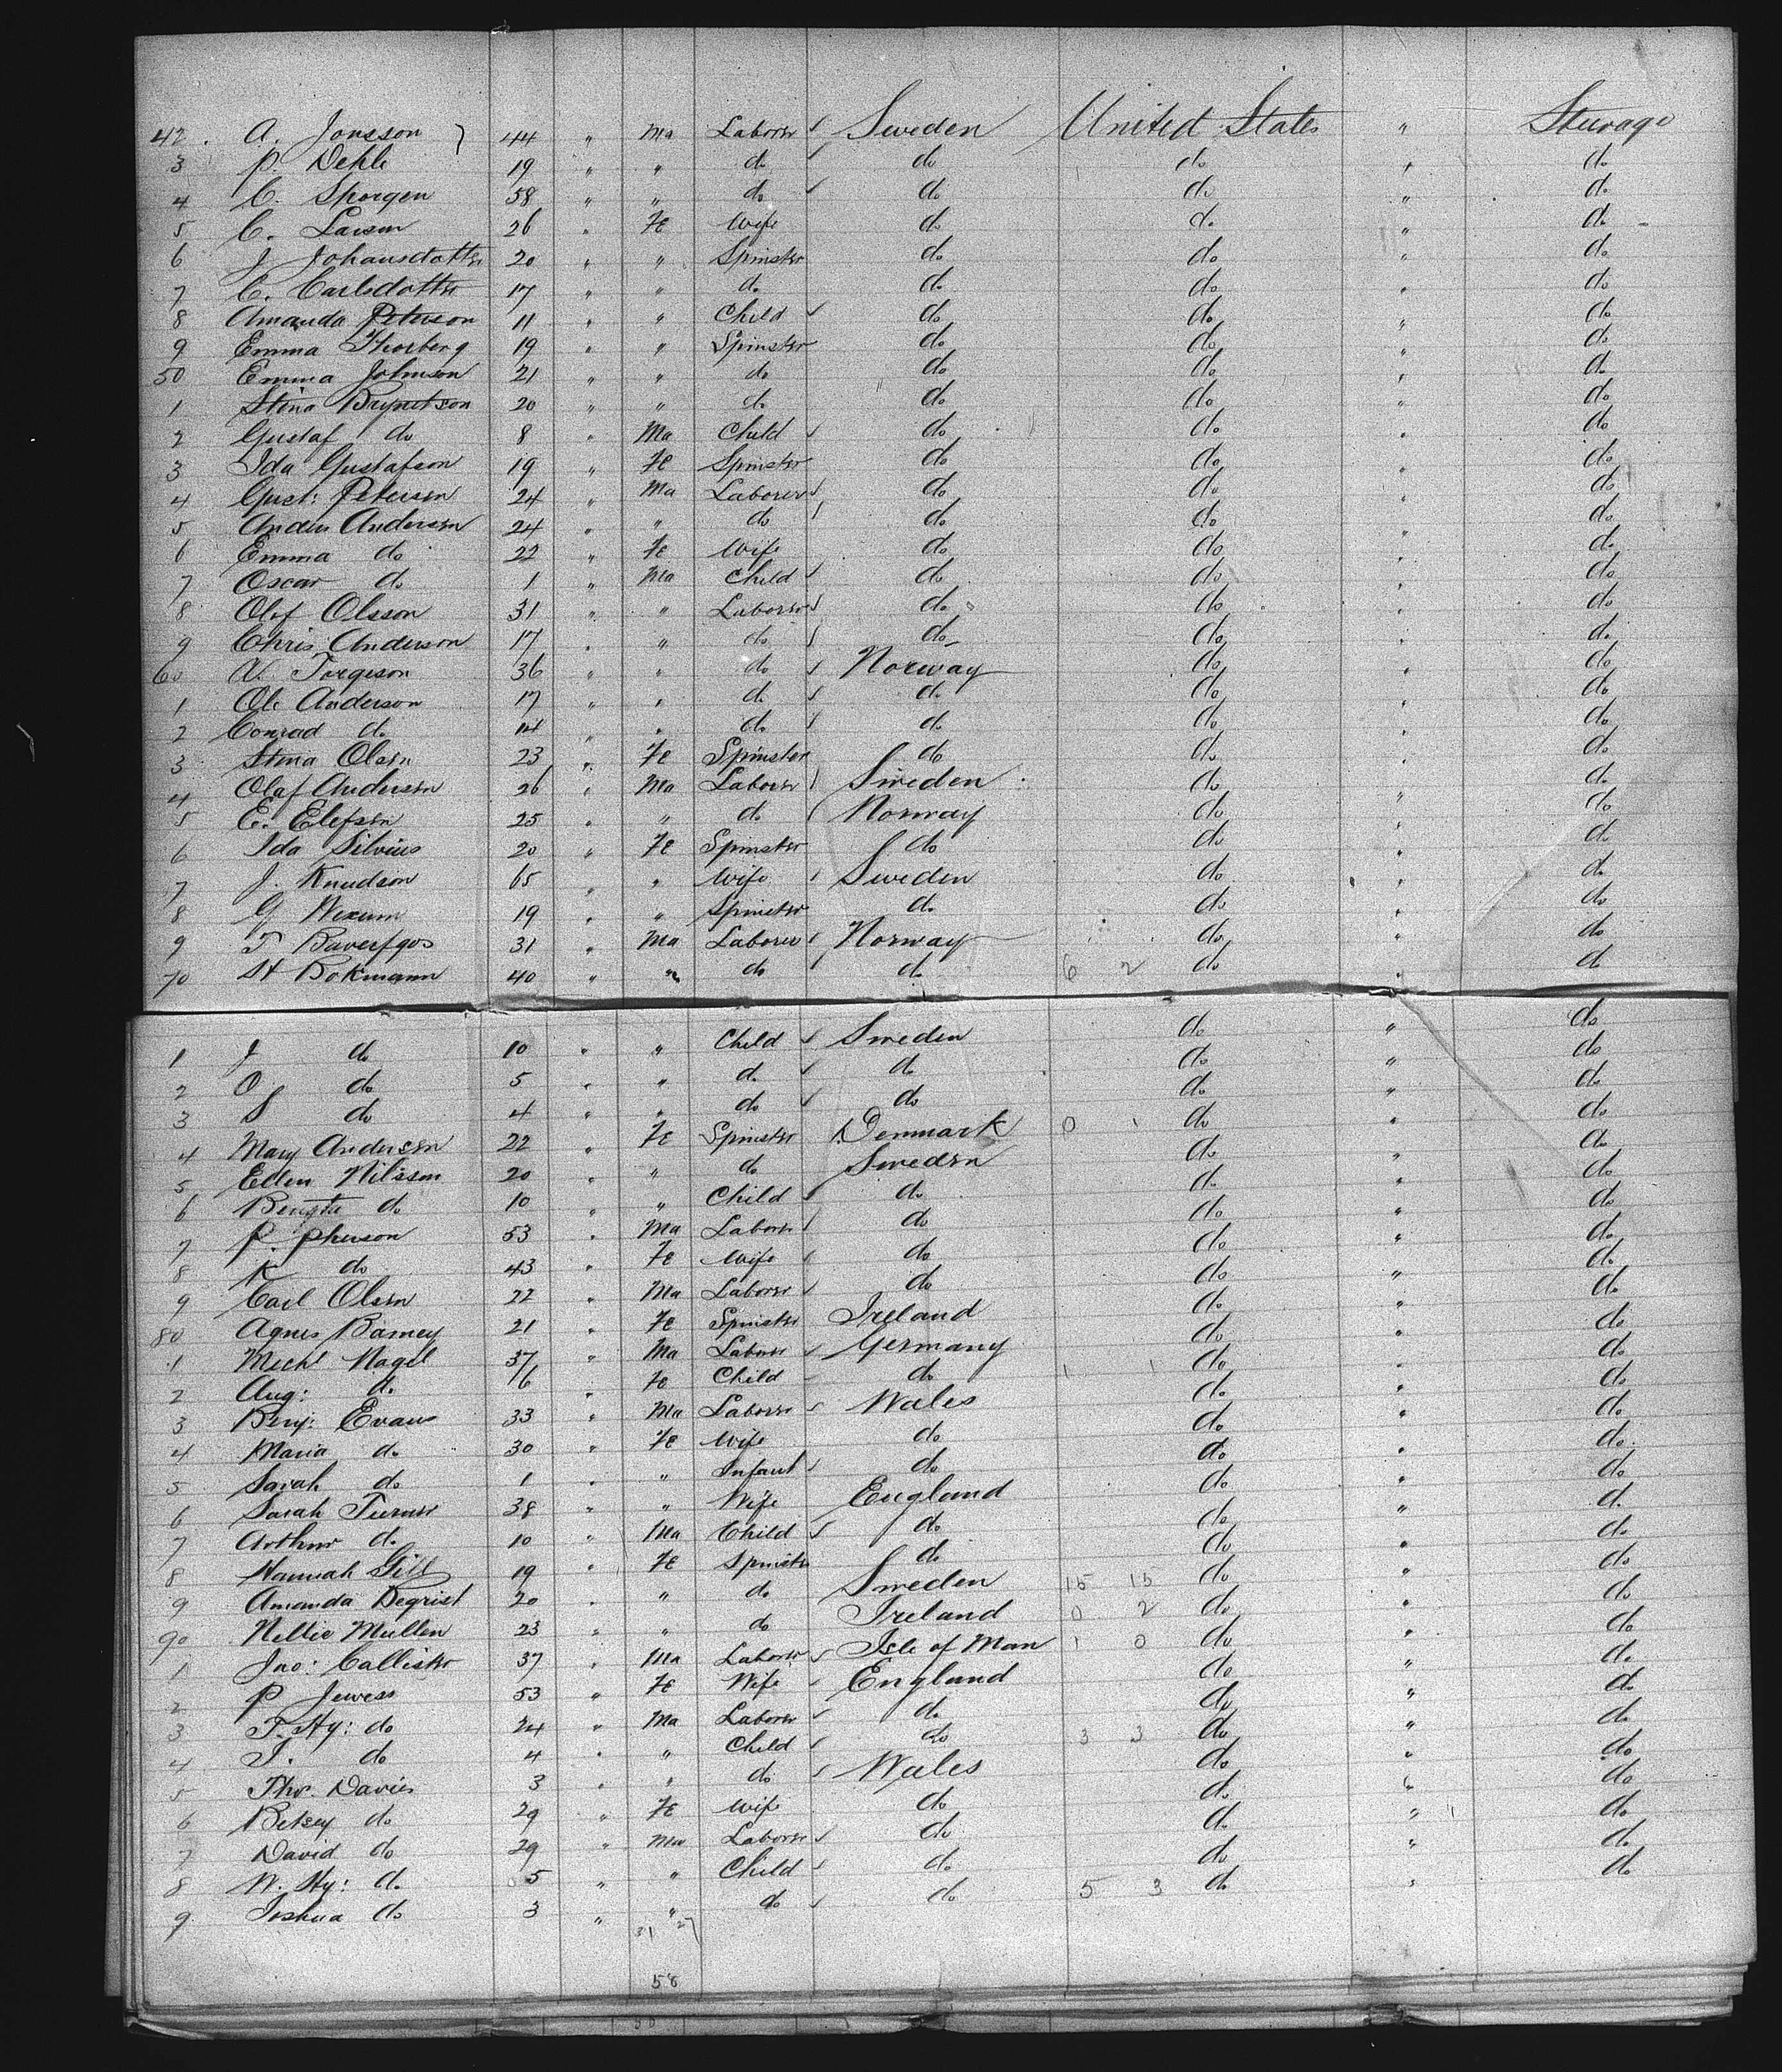 42. A. Jonsson } 44 " Ma Laborer ✓ Sweden United States " Steerage
3 P. Dehle 19 " " do ✓ do do " do
4 C. Shorgen 58 " " do ✓ do do " do
5 C. Larson 26 " Fe Wife do do " do
6 J Johansdotter 20 " " Spinster do do " do
7 C. Carlsdotter 17 " " do do do " do
8 Amanda Peterson 11 " " Child ✓ do do " do
9 Emma Thorberg 19 " " Spinster do do " do
50 Emma Johnson 21 " " do do do " do
1 Stina 20 " " do do do " do
2 Gustaf do 8 " Ma Child ✓ do do " do
3 Ida Gustafson 19 " Fe Spinster do do " do
4 Gust: Peterson 24 " Ma Laborer ✓ do do " do
5 Anders Anderson 24 " " do ✓ do do " do
6 Emma do 22 " Fe Wife do do " do
7 Oscar do 1 " Ma Child ✓ do do " do
8 Olof Olsson 31 " " Laborer ✓ do do " do
9 Chris. Anderson 17 " " do ✓ do do " do
60 N. Torgeson 36 " " do ✓ Norway do " do
1 Ole Anderson 17 " " do ✓ do do " do
2 Conrad do 14 " " do ✓ do do " do
3 Stina Olsen 23 " Fe Spinster do do " do
4 Olaf Anderson 26 " Ma Laborer ✓ Sweden do " do
5 E. Elefsen 25 " " do ✓ Norway do " do
6 Ida Silvius 20 " Fe Spinster do do " do
7 J. Knudson 65 " " Wife Sweden do " do
8 G Wexum 19 " " Spinster do do " do
9 T 31 " Ma Laborer ✓ Norway do " do
70 H Bokmann 40 " " do do 6 2 do " do
1 J do 10 " " Child ✓ Sweden do " do
2 O do 5 " " do ✓ do do " do
3 S do 4 " " do ✓ do do " do
4 Mary Anderson 22 " Fe Spinster Denmark 0 1 do " do
5 Ellen Nilsson 20 " " do Sweden do " do
6 Bengta do 10 " " Child ✓ do do " do
7 P. Pherson 53 " Ma Laborer ✓ do do " do
8 K do 43 " Fe Wife do do " do
9 Carl Olsen 22 " Ma Laborer ✓ do do " do
80 Agnes Barney 21 " Fe Spinster Ireland do " do
1 Michl Nagel 37 " Ma Laborer ✓ Germany do " do
2 Aug: do 6 " Fe Child do 1 1 do " do
3 Benj: Evans 33 " Ma Laborer ✓ Wales do " do
4 Maria do 30 " Fe Wife do do " do
5 Sarah do 1 " " Infant ✓ do do " do
6 Sarah Turner 38 " " Wife England do " do
7 Arthur do 10 " Ma Child ✓ do do " do
8 Hannah Gill 19 " Fe Spinster do do " do
9 Amanda Degrist 20 " " do Sweden 15 15 do " do
90 Nellie Mullen 23 " " do Ireland 0 2 do " do
1 Jno: Callister 37 " Ma Laborer ✓ Isle of Man 1 0 do " do
2 P Jewess 53 " Fe Wife England do " do
3 T. Hy: do 24 " Ma Laborer ✓ do do " do
4 T. do 4 " " Child ✓ do 3 3 do " do
5 Thos. Davies 3 " " do ✓ Wales do " do
6 Betsey do 29 " Fe Wife do do " do
7 David do 29 " Ma Laborer ✓ do do " do
8 W. Hy: do 5 " " Child ✓ do do " do
9 Joshua do 3 " " do ✓ do 5 3 do "
31 27
58